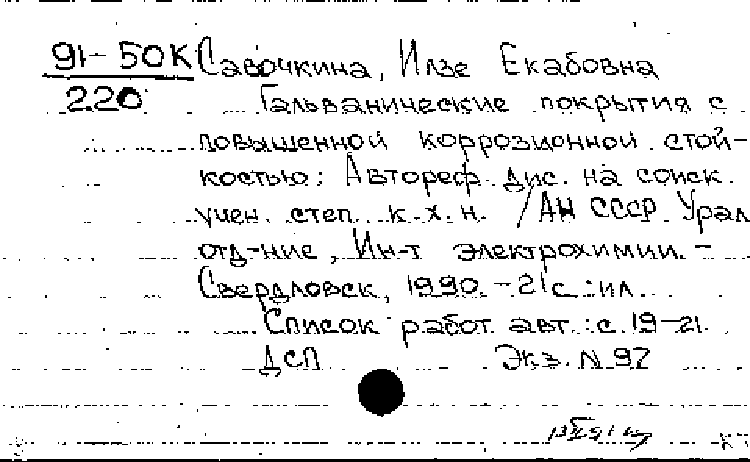 91-50К Савочкина, Илзе Екабовна
220 Гальванические покрытия с
повышенной коррозионной стой-
костью: Автореф. дис. на соиск.
учен. степ. к.х.н. / АН СССР. Урал
отд-ние, Ин-т электрохимии. -
Свердловск, 1990. - 21 с.: ил.
Список работ авт.: с. 19-21.
ДСП Экз. N 97